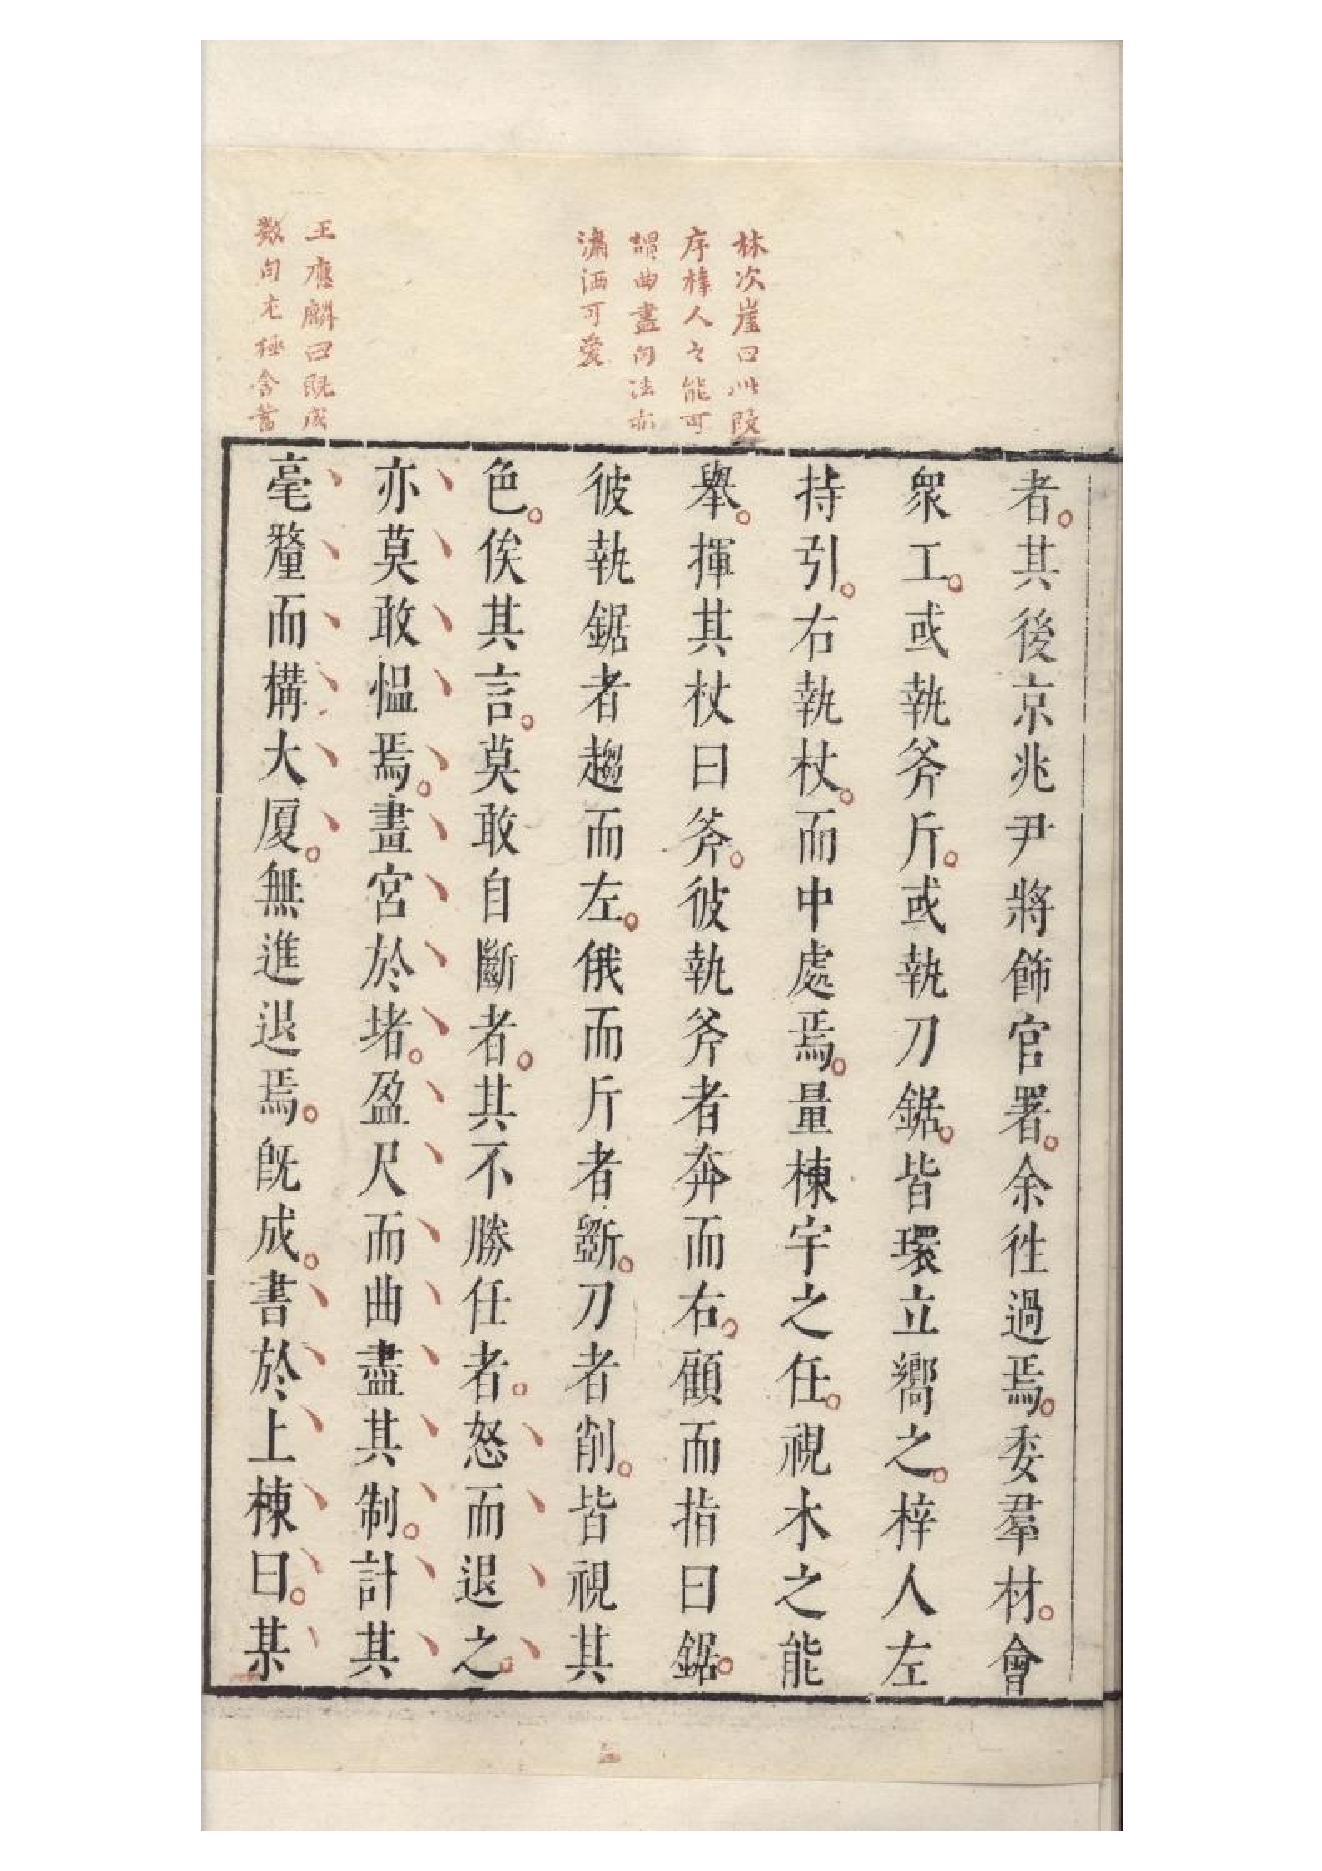 林次崖曰此段
序梓人之能可
謂曲盡句法亦
瀟洒可愛
王應麟曰既成
數句尤極含蓄
者。其後京兆尹將飾官署。余徃過焉。委羣材。會
衆工。或執斧斤。或執刀鋸。皆環立嚮之。梓人左
持引。右執杖。而中處焉。量棟宇之任。視木之能
舉。揮其杖曰斧。彼執斧者奔而右。顧而指曰鋸。
彼執鋸者趨而左。俄而斤者斲。刀者削。皆視其
色。俟其言。莫敢自斷者。其不勝任者。怒而退之。
亦莫敢慍焉。畫宮於堵。盈尺而曲盡其制。計其
毫釐而構大厦。無進退焉。旣成。書於上棟曰。某